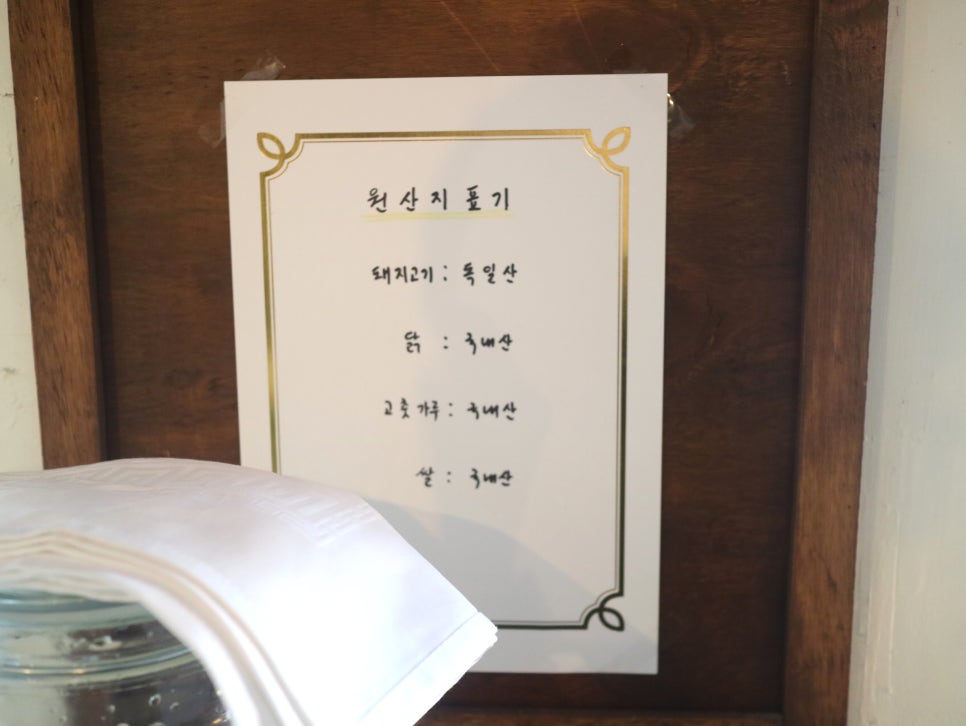 원산지 표기
돼지고기 : 독일산
닭 : 국내산
고춧가루 : 국내산
쌀 : 국내산